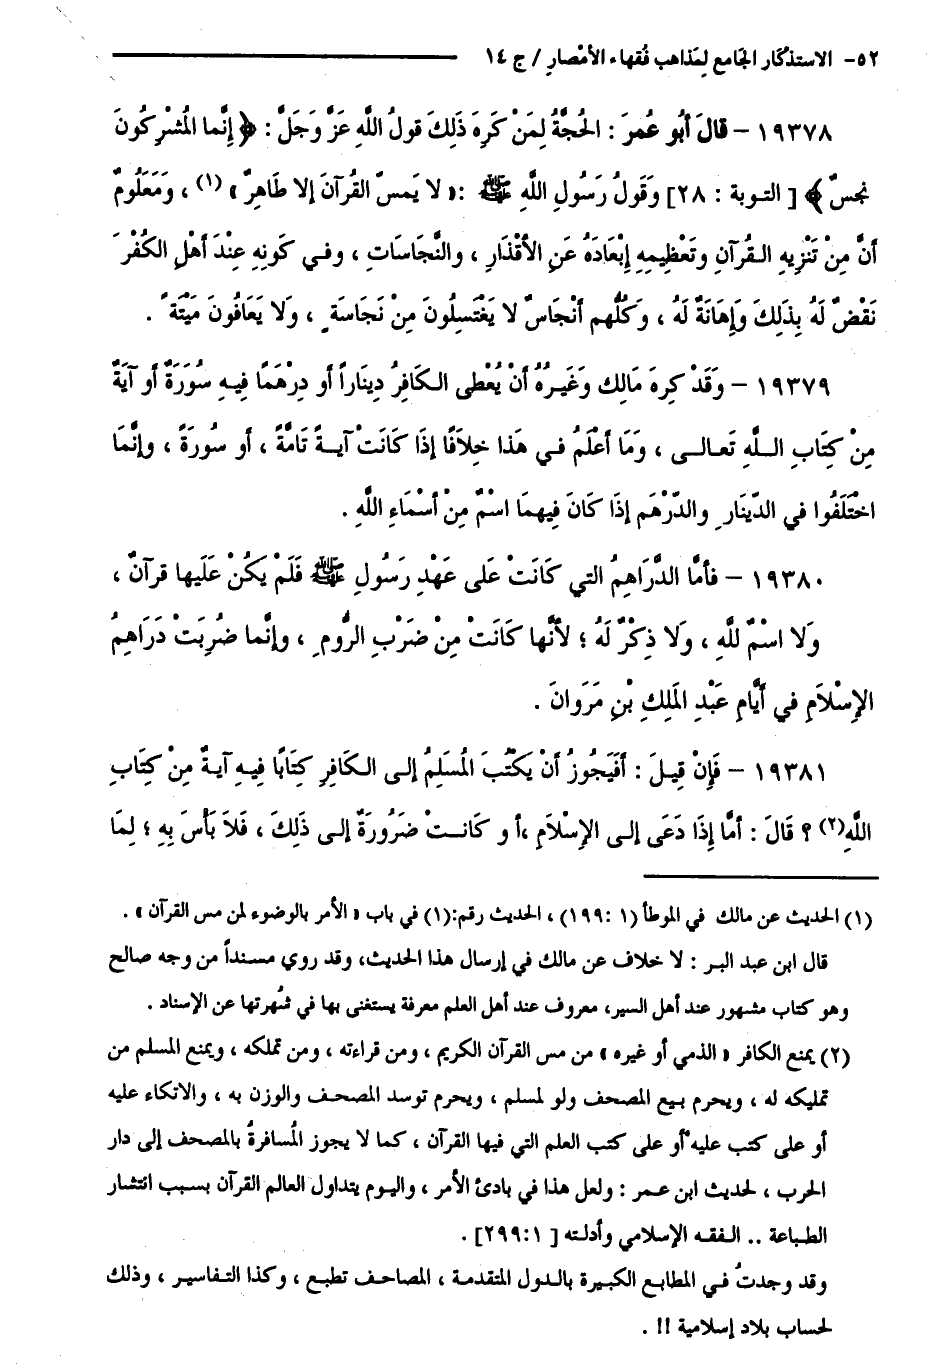 ٥٢- الاستذكار الجامع لِمَذاهب فُقهاء الأمْصارِ / ج ١٤
١٩٣٧٨ – قالَ أبُو عُمرَ : الحُجَّةُ لِمَنْ كَرِهَ ذَلِكَ قولُ اللَّهِ عَزَّ وَجَلَّ : ﴿ إِنَّما المُشْرِكُونَ
نجسٌ ﴾ [ التوبة : ٢٨] وَقَولُ رَسُولِ اللَّهِ ﷺ :« لا يَمسّ القُرآنَ إلا طَاهِرٌ » (١) ، وَمَعْلُومٌ
أنَّ مِنْ تَنْزِيهِ القُرآنِ وتَعْظِيمِهِ إِبْعَادَهُ عَنِ الأقْذَارِ ، والنَّجَاسَاتِ ، وفي كَونِهِ عِنْدَ أهْلِ الكُفْرَ
نَقْضٌ لَهُ بِذَلِكَ وَإِهَانَةٌ لَهُ ، وَكُلُّهم أنْجَاسٌ لا يَغْتَسِلُونَ مِنْ نَجَاسَةٍ ، وَلا يَعَافُونَ مَيْتَةً .
١٩٣٧٩ – وَقَدْ كرِهَ مَالِك وَغَيرُهُ أنْ يُعْطى الكَافِرُ دِينَاراً أو دِرْهَمًا فِيهِ سُورَةٌ أو آيَةٌ
مِنْ كِتَابِ اللَّهِ تَعالى ، وَمَا أعْلَمُ في هَذا خِلاَفًا إذَا كَانَتْ آيةً تَامَّةً ، أو سُورَةً ، وإنَّمَا
اخْتَلَفُوا في الدّينَارِ والدّرْهَم إذَا كَانَ فِيهِمَا اسْمٌ مِنْ أسْمَاءِ اللَّهِ .
١٩٣٨٠ – فأمَّا الدَّرَاهِمُ التي كَانَتْ عَلى عَهْدِ رَسُولِ ﷺ فَلَمْ يَكُنْ عَلَيها قرآنٌ ،
وَلا اسْمٌ للَّهِ ، وَلا ذِكْرٌ لَهُ ؛ لأنَّها كَانَتْ مِنْ ضَرْبِ الرُّومِ ، وإنَّما ضُرِبَتْ دَرَاهِمُ
الإِسْلاَمِ في أيَّامِ عَبْدِ المَلِكِ بْنِ مَرَوانَ .
١٩٣٨١ – فَإِنْ قِيلَ : أفَيَجُوزُ أنْ يَكْتُبَ المُسْلِمُ إلى الكَافِرِ كِتَابًا فِيهِ آيةٌ مِنْ كِتَابِ
اللَّهِ(٢) ؟ قَالَ : أمَّا إذَا دَعَى إلى الإِسْلاَمِ ،أ و كَانتْ ضَرُورَةٌ إلى ذَلِكَ ، فَلاَ بَأسَ بِهِ ؛ لِمَا
(١) الحديث عن مالك في الموطأ (١ :١٩٩) ، الحديث رقم:(١) في باب « الأمر بالوضوء لمن مس القرآن » .
قال ابن عبد البر : لا خلاف عن مالك في إرسال هذا الحديث، وقد روي مسنداً من وجه صالح
وهو كتاب مشهور عند أهل السير، معروف عند أهل العلم معرفة يستغنى بها في شُهرتها عن الإسناد .
(٢) يمنع الكافر « الذمي أو غيره » من مس القرآن الكريم ، ومن قراءته ، ومن تملكه ، ويمنع المسلم من
تمليكه له ، ويحرم بيع المصحف ولو لمسلم ، ويحرم توسد المصحف والوزن به ، والاتكاء عليه
أو على كتب عليه أو على كتب العلم التي فيها القرآن ، كما لا يجوز المُسافرةُ بالمصحف إلى دار
الحرب ، لحديث ابن عمر : ولعل هذا في بادئ الأمر ، واليوم يتداول العالم القرآن بسبب انتشار
الطباعة .. الفقه الإسلامي وأدلته [ ٢٩٩:١] .
وقد وجدتُ في المطابع الكبيرة بالدول المتقدمة ، المصاحف تطبع ، وكذا التفاسير ، وذلك
لحساب بلاد إسلامية !! .